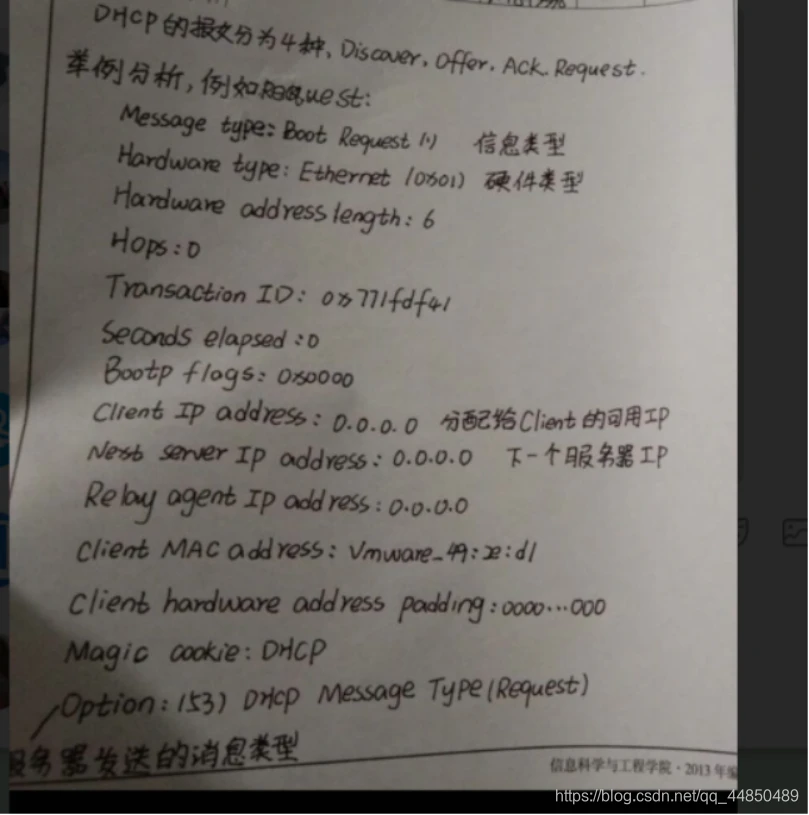 DHCP的报文分为4种、Discover, Offer, Ack, Request.
举例分析,例如Request:
Message type: Boot Request (1) 信息类型
Hardware type: Ethernet (0x01) 硬件类型
Hardware address length: 6
Hops: 0
Transaction ID: 0x771fdf41
Seconds elapsed: 0
Bootp flags: 0x0000
Client IP address: 0.0.0.0 分配给Client的可用IP
Next server IP address: 0.0.0.0 下一个服务器IP
Relay agent IP address: 0.0.0.0
Client MAC address: Vmware_49: :d1
Client hardware address padding: 0000...000
Magic cookie: DHCP
Option: (53) DHCP Message Type (Request)
服务器发送的消息类型
信息科学与工程学院·2013年编
https://blog.csdn.net/qq_44850489